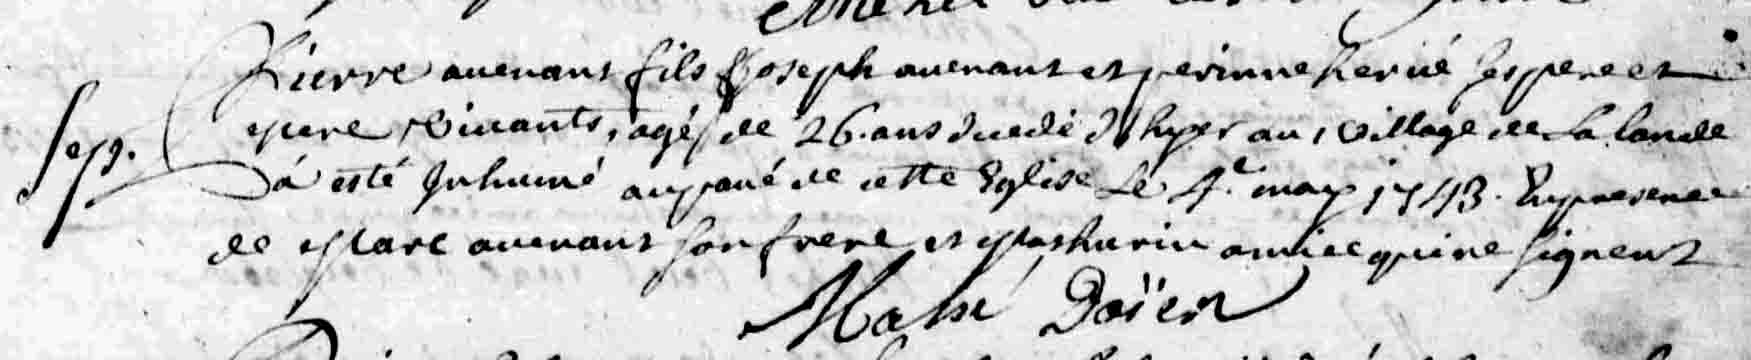 Sep.
Pierre auenant fils Joseph auenant et perinne herué ses pere et
mere viuants, agé de 26. ans decedé d'hyer au village de la lande
a esté Inhumé au paué de cette Eglise Le 4.e may 1743. En presence
de Marc auenant son frere et Mathurin amice qui ne signent
Doïen